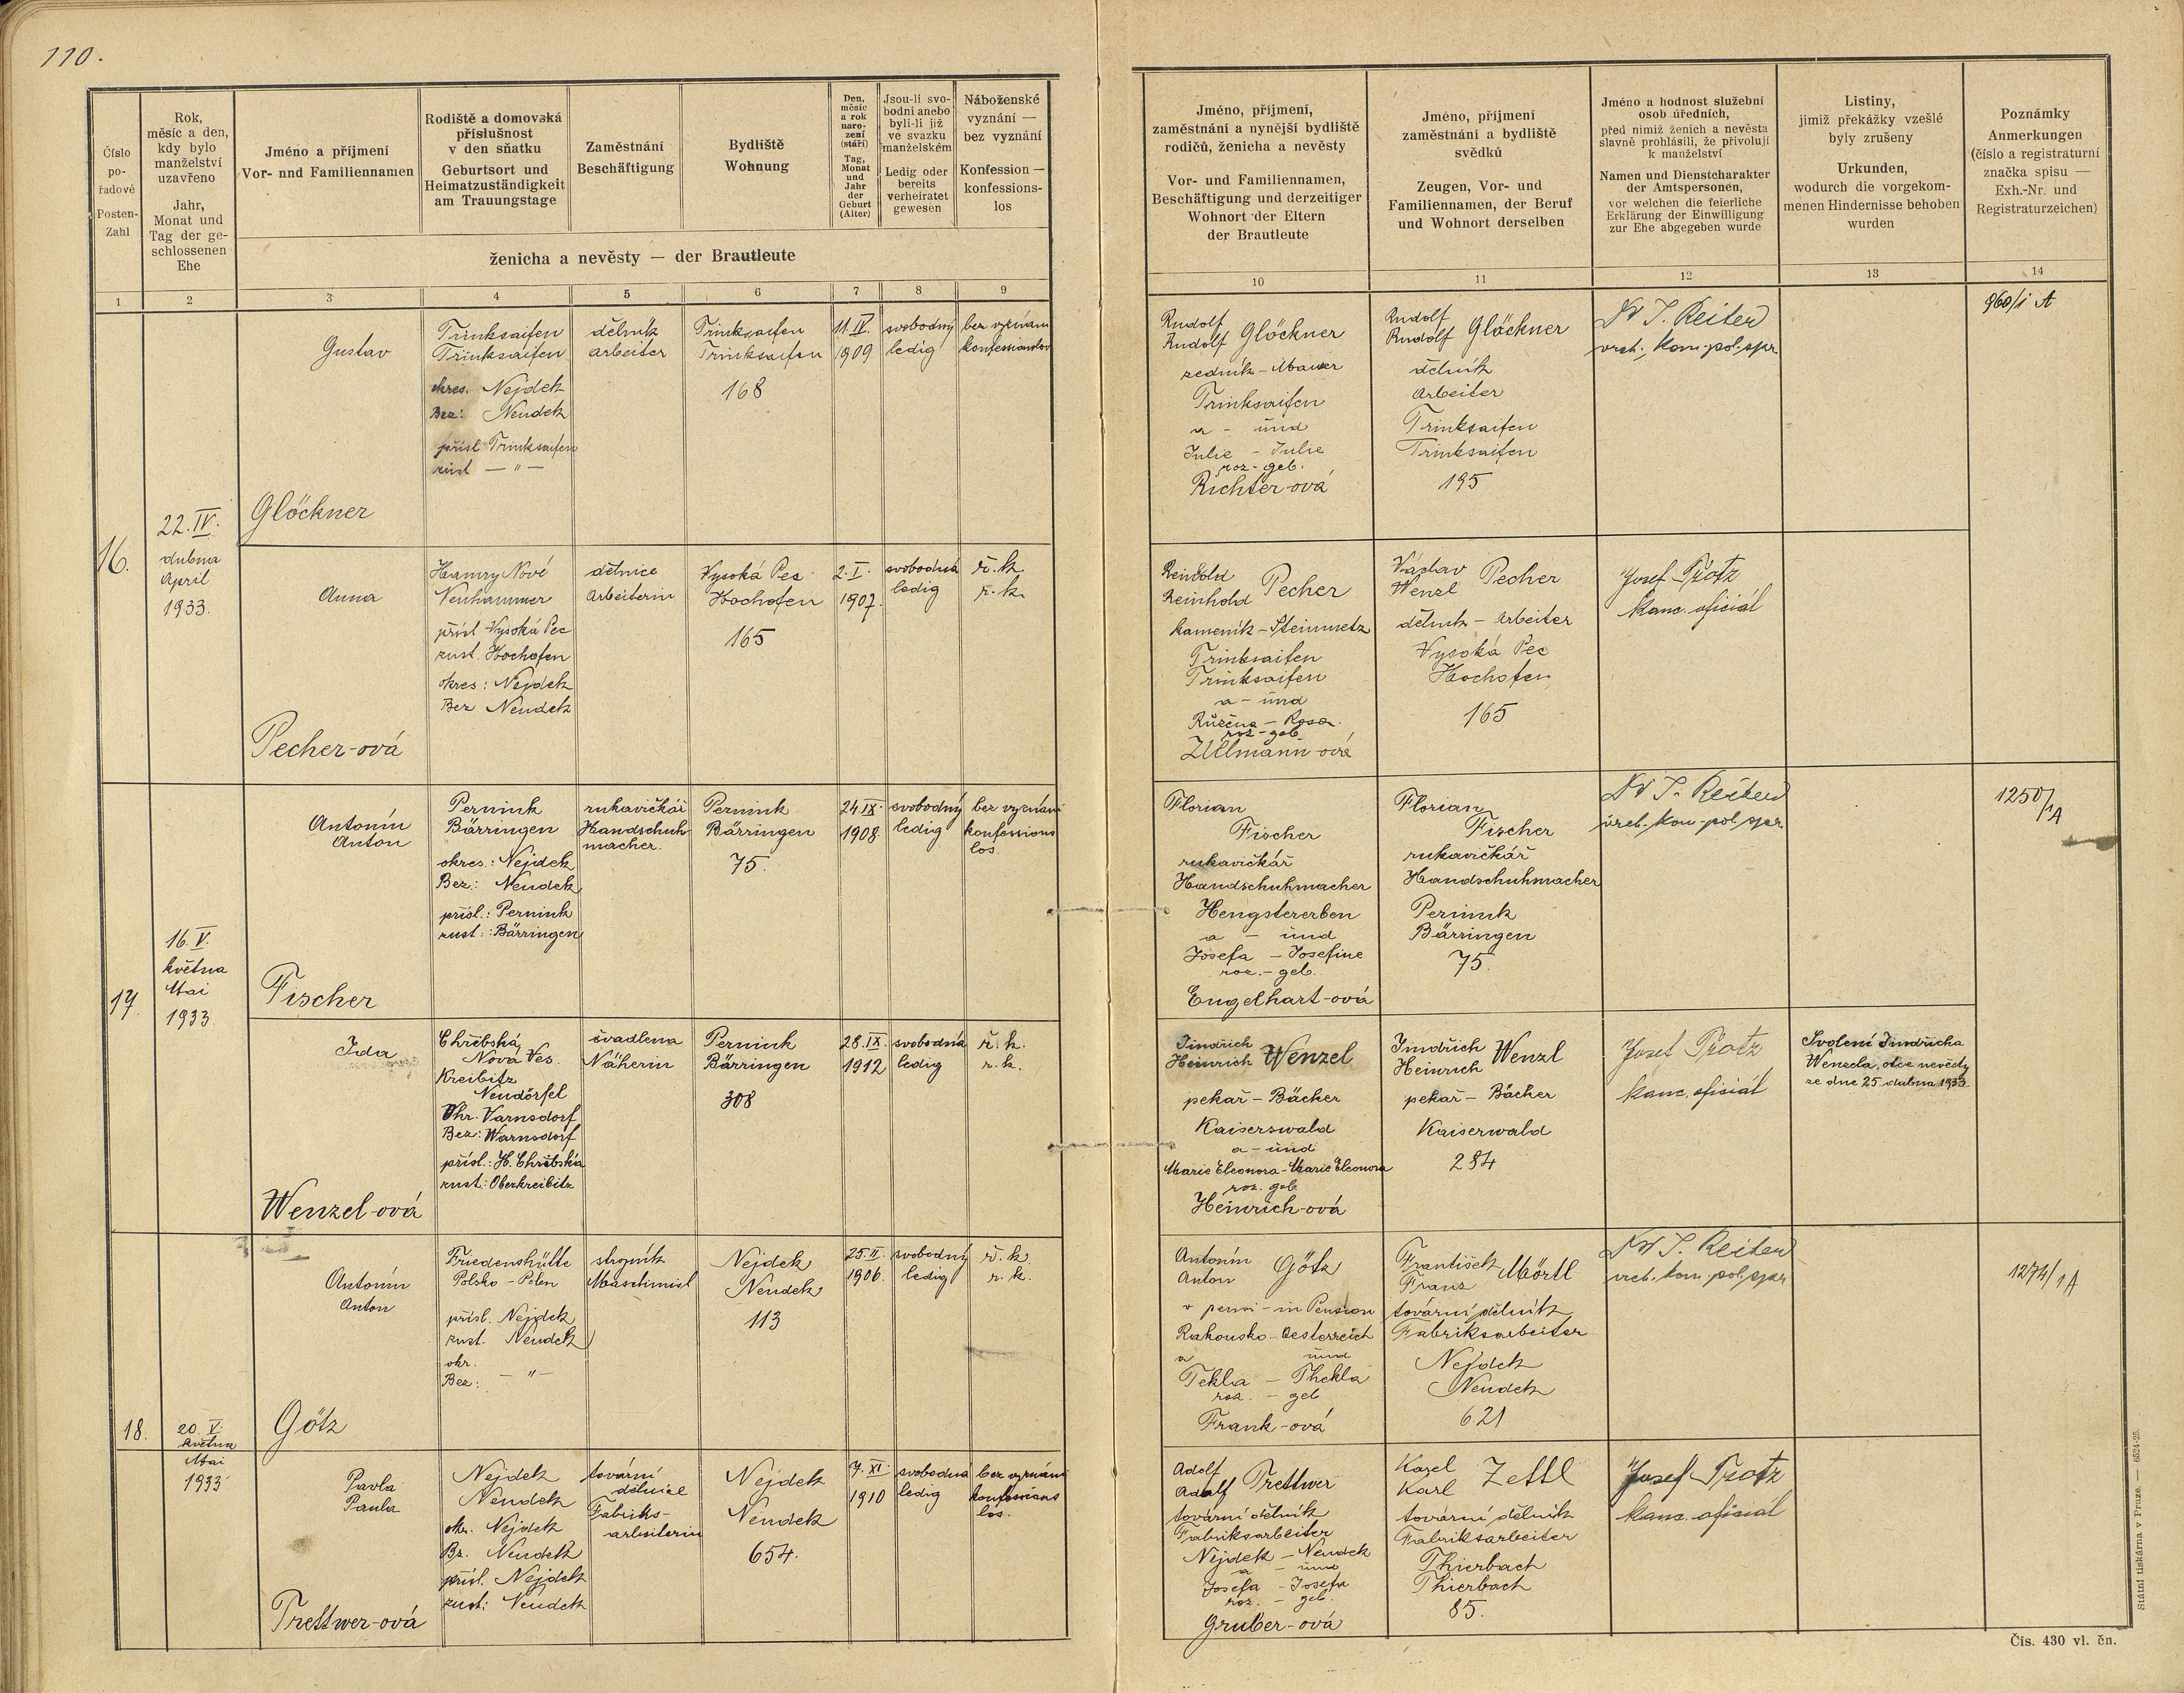 110.
Číslo
po-
řadové
Posten-
Zahl
Rok,
měsíc a den,
kdy bylo
manželství
uzavřeno
Jahr,
Monat und
Tag der ge-
schlossenen
Ehe
Jméno a příjmení
Vor- nnd Familiennamen
Rodiště a domovská
příslušnost
v den sňatku
Geburtsort und
Heimatzuständigkeit
am Trauungstage
Zaměstnání
Beschäftigung
Bydliště
Wohnung
Den,
měsíc
a rok
naro-
zení
(stáří)
Tag,
Monat
und
Jahr
der
Geburt
(Alter)
Jsou-li svo-
bodni anebo
byli-li již
ve svazku
manželském
Ledig oder
bereits
verheiratet
gewesen
Náboženské
vyznání —
bez vyznání
Konfession —
konfessions-
los
ženicha a nevěsty — der Brautleute
1 2 3 4 5 6 7 8 9
Jméno, příjmení,
zaměstnání a nynější bydliště
rodičů, ženicha a nevěsty
Vor- und Familiennamen,
Beschäftigung und derzeitiger
Wohnort der Eltern
der Brautleute
Jméno, příjmení
zaměstnání a bydliště
svědků
Zeugen, Vor- und
Familiennamen, der Beruf
und Wohnort derselben
Jméno a hodnost služební
osob úředních,
před nimiž ženich a nevěsta
slavně prohlásili, že přivolují
k manželství
Namen und Dienstcharakter
der Amtspersonen,
vor welchen die feierliche
Erklärung der Einwilligung
zur Ehe abgegeben wurde
Listiny,
jimiž překážky vzešlé
byly zrušeny
Urkunden,
wodurch die vorgekom-
menen Hindernisse behoben
wurden
Poznámky
Anmerkungen
(číslo a registraturní
značka spisu —
Exh.-Nr. und
Registraturzeichen)
10 11 12 13 14
16.
22. IV.
dubna
April
1933.
Gustav
Glöckner
Trinksaifen
Trinksaifen
okres. Nejdek
Bez: Neudek
přísl. Trinksaifen
zust — " —
dělník
Arbeiter
Trinksaifen
Trinksaifen
168
11. IV.
1909
svobodný
ledig
bez vyznání
konfessionslos
Rudolf
Rudolf Glöckner
zedník - Mauer
Trinksaifen
a - und
Julie - Julie
roz - geb.
Richter-ová
Rudolf
Rudolf Glöckner
dělník
Arbeiter
Trinksaifen
Trinksaifen
195
Dr J. Reiter
vrch. kom. pol. spr.
960/1 A
Anna
Pecher-ová
Hamry Nové
Neuhammer
přísl. Vysoká Pec
zust. Hochofen
okres: Nejdek
Bez Neudek
dělnice
Arbeiterin
Vysoká Pec
Hochofen
165
2. I.
1907.
svobodná
ledig
ř. k.
r. k.
Reinhold
Reinhold Pecher
kameník - Steinmetz
Trinksaifen
Trinksaifen
a - und
Růžena - Rosa
roz - geb
Ullmann-ová
Václav
Wenzl Pecher
dělník - Arbeiter
Vysoká Pec
Hochofen
165
Josef Protz
kanc. oficiál
17.
16. V.
května
Mai
1933.
Antonín
Anton
Fischer
Pernink
Bärringen
okres.: Nejdek
Bez: Neudek
přísl.: Pernink
zust.: Bärringen
rukavičkář
Handschuh-
macher.
Pernink
Bärringen
75.
24. IX.
1908.
svobodný
ledig
bez vyznání
konfessions
los.
Florian
Fischer
rukavičkář
Handschuhmacher
Hengstererben
a - und
Josefa - Josefine
roz. - geb.
Engelhart-ová
Florian
Fischer
rukavičkář
Handschuhmacher
Pernink
Bärringen
75.
Dr J. Reiter
vrch. kom. pol. spr.
1250/1A
Ida
Wenzel-ová
Chřibská
Nová Ves.
Kreibitz
Neudörfel
Okr. Varnsdorf
Bez: Warnsdorf
přísl.: H. Chřibská
zust.: Oberkreibitz
švadlena
Näherin
Pernink
Bärringen
308
28. IX.
1912
svobodná
ledig
ř. k.
r. k.
Jindřich
Heinrich Wenzel
pekař - Bäcker
Kaiserswald
a - und
Marie Eleonora - Marie Eleonora
roz. geb.
Heinrich-ová
Jindřich
Heinrich Wenzl
pekař - Bäcker
Kaiserwald
284
Josef Protz
kanc. oficiál
Svolení Jindřicha
Wenzela, otce nevěsty
ze dne 25. dubna 1933.
18.
20. V.
května
Mai
1933
Antonín
Anton
Götz
Friedenshütte
Polsko - Polen
přísl. Nejdek
zust. Neudek
okr.
Bez: — " —
strojník
Maschinist
Nejdek
Neudek
113
25. II.
1906.
svobodný
ledig
ř. k.
r. k.
Antonín
Anton Götz
v pensi - in Pension
Rakousko - Oesterreich
a und
Tekla - Thekla
roz. - geb
Frank-ová
František
Franz Mörtl
tovární dělník
Fabriksarbeiter
Nejdek
Neudek
621
Dr J. Reiter
vrch. kom. pol. spr.
1274/1A
Pavla
Paula
Trettwer-ová
Nejdek
Neudek
okr. Nejdek
Bz. Neudek
přísl. Nejdek
zust: Neudek
tovární
dělnice
Fabriks-
arbeiterin
Nejdek
Neudek
654.
7. XI.
1910
svobodná
ledig
bez vyznání
konfessions
los.
Adolf
Adolf Trettwer
tovární dělník
Fabriksarbeiter
Nejdek - Neudek
a - und
Josefa - Josefa
roz. - geb.
Gruber-ová
Karel
Karl Zettl
tovární dělník
Fabriksarbeiter
Thierbach
Thierbach
85.
Josef Protz
kanc. oficiál
Státní tiskárna v Praze. — 6524-25.
Čís. 430 vl. čn.